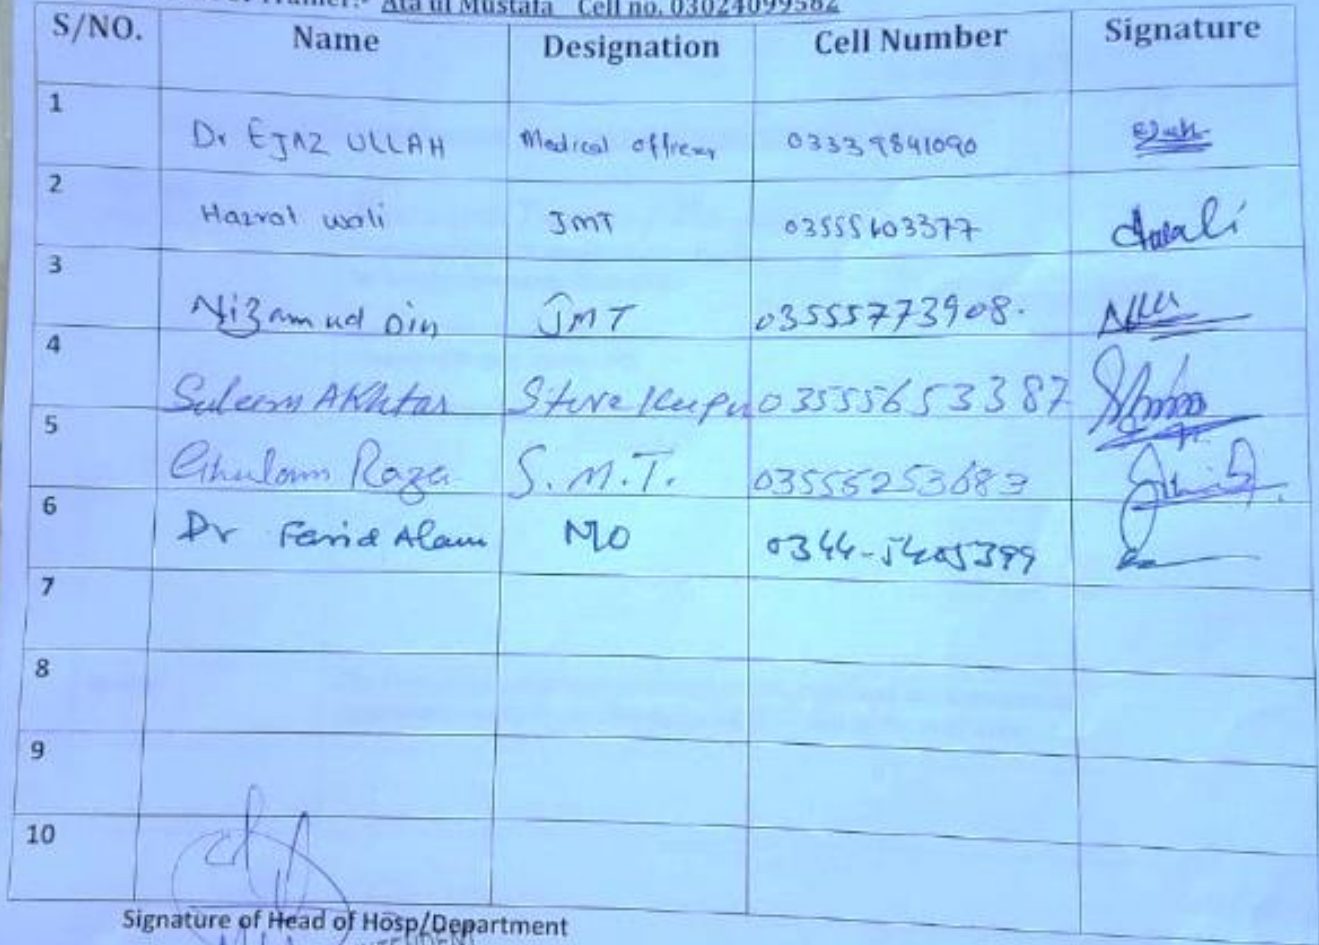 Trainer:- Ata ul Mustafa Cell no. 03024099582
S/NO. Name Designation Cell Number Signature
1 Dr EJAZ ULLAH Medical officer 03339841090
2 Hazrat wali JMT 03555603377
3 Nizam ud Din JMT 03555773908.
4 Saleem Akhtar Store Keeper 03555653387
5 Ghulam Raza S.M.T. 03555253683
6 Dr Farid Alam MO 0344-5405399
7
8
9
10
Signature of Head of Hosp/Department